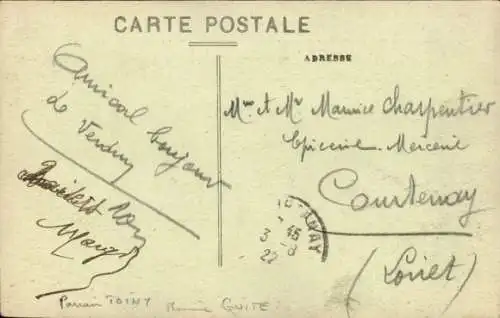 CARTE POSTALE
ADRESSE
Amical bonjour
de
Mme et Mr Maurice Charpentier
Epicerie Mercerie
Courtenay
(Loiret)
NAY
15
3 - 8
22
Parrain TOINY
GUITE